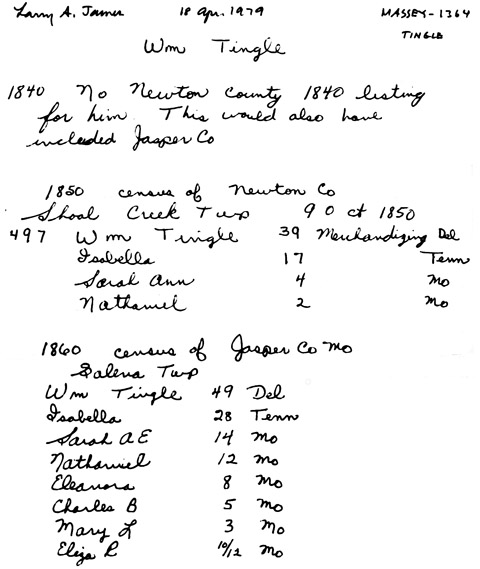 Larry A. James 18 Apr. 1979 MASSEY-1364
TINGLE
Wm Tingle
1840 No Newton county 1840 listing
for him. This would also have
included Jasper Co
1850 census of Newton Co
Shoal Creek Twp 9 Oct 1850
497 Wm Tingle 39 Merchandizing Del
Isabella 17 Tenn
Sarah Ann 4 Mo
Nathaniel 2 Mo
1860 census of Jasper Co Mo
Galena Twp
Wm Tingle 49 Del
Isabella 28 Tenn
Sarah A E 14 Mo
Nathaniel 12 Mo
Eleanora 8 Mo
Charles B 5 Mo
Mary L 3 Mo
Eliza R 10/12 Mo